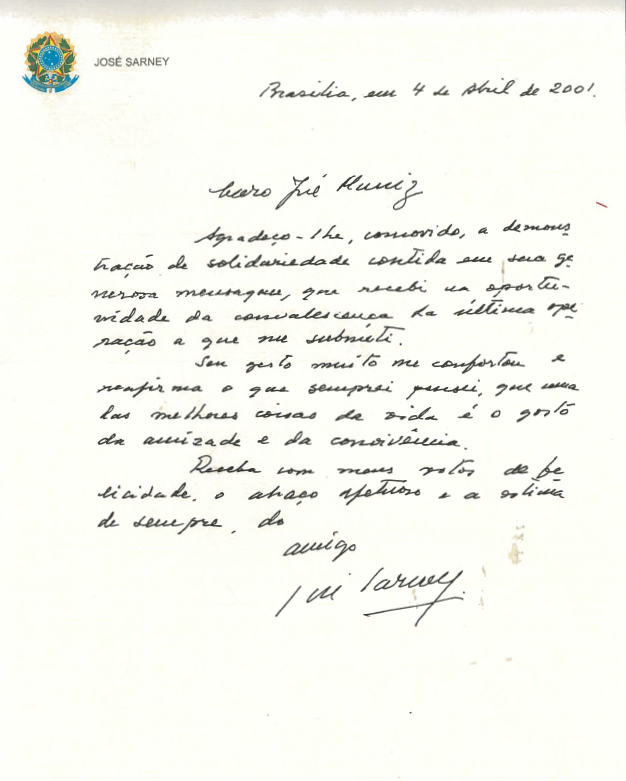 JOSÉ SARNEY
Brasília, em 4 de Abril de 2001.
Caro José Muniz
Agradeço-lhe, comovido, a demons
tração de solidariedade contida em sua ge
nerosa mensagem, que recebi na oportu-
nidade da convalescença da última ope
ração a que me submeti.
Seu gesto muito me confortou e
reafirma o que sempre pensei, que uma
das melhores coisas da vida é o gosto
da amizade e da convivência.
Receba com meus votos de fe
licidade, o abraço afetuoso e a estima
de sempre, do
amigo
José Sarney